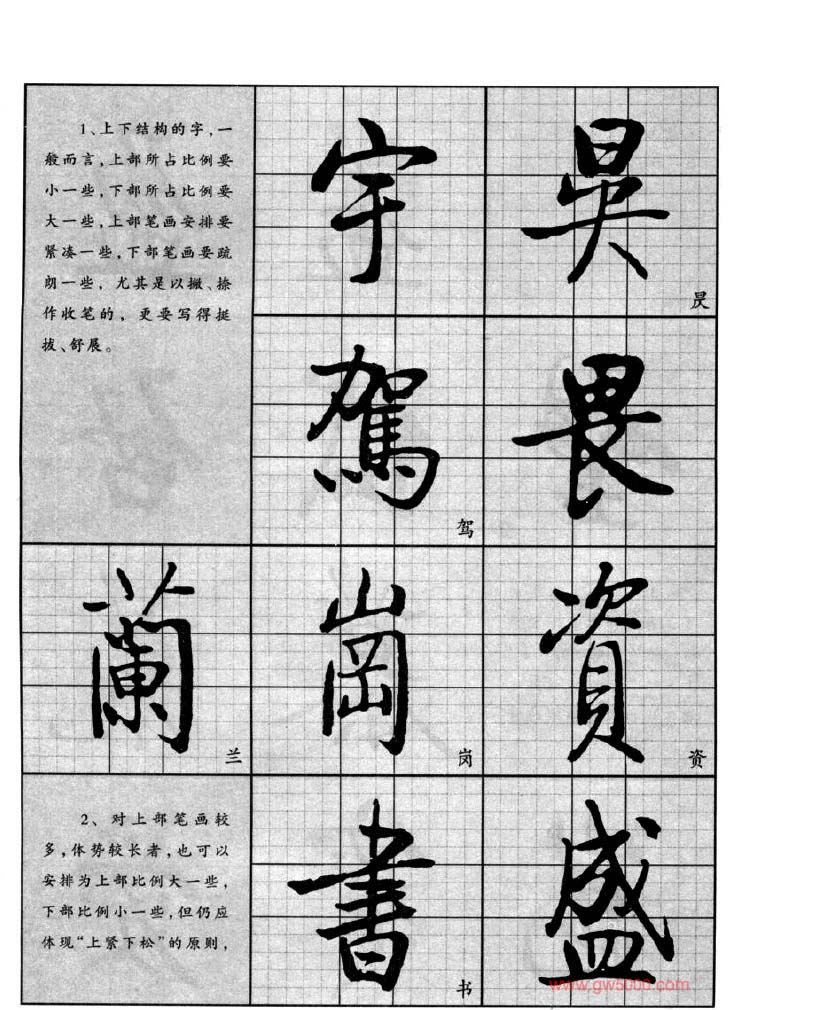 1、上下结构的字，一
般而言，上部所占比例要
小一些，下部所占比例要
大一些，上部笔画安排要
紧凑一些，下部笔画要疏
朗一些，尤其是以撇、捺
作收笔的，更要写得挺
拔、舒展。
宇
昊
昃
駕
驾
畏
蘭
兰
崗
岗
資
资
2、对上部笔画较
多，体势较长者，也可以
安排为上部比例大一些，
下部比例小一些，但仍应
体现“上紧下松”的原则，
書
书
盛
www.gw5000.com